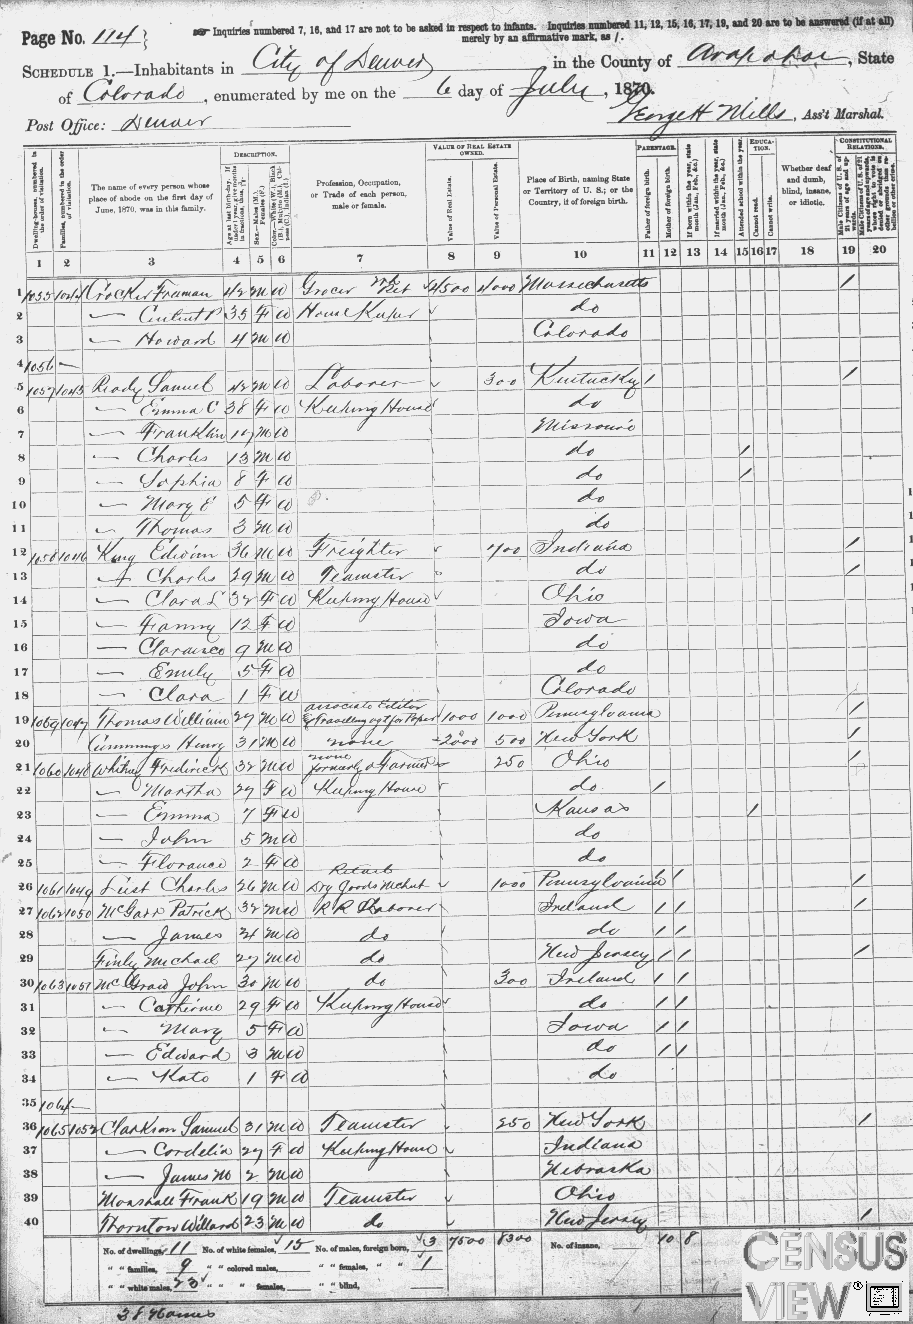 Page No. 114
Inquiries numbered 7, 16, and 17 are not to be asked in respect to infants. Inquiries numbered 11, 12, 15, 16, 17, 19, and 20 are to be answered (if at all)
merely by an affirmative mark, as /.
SCHEDULE 1.—Inhabitants in City of Denver, in the County of Arapahoe, State
of Colorado, enumerated by me on the 6 day of July, 1870.
Post Office: Denver George H Mills, Ass't Marshal.
Dwelling-houses, numbered in the order of visitation.
Families, numbered in the order of visitation.
The name of every person whose place of abode on the first day of June, 1870, was in this family.
DESCRIPTION.
Profession, Occupation, or Trade of each person, male or female.
VALUE OF REAL ESTATE OWNED.
Value of Real Estate.
Value of Personal Estate.
Place of Birth, naming State or Territory of U. S.; or the Country, if of foreign birth.
PARENTAGE.
Father of foreign birth.
Mother of foreign birth.
Attended school within the year.
EDUCATION.
Cannot read.
Cannot write.
Whether deaf and dumb, blind, insane, or idiotic.
CONSTITUTIONAL RELATIONS.
1 2 3 4 5 6 7 8 9 10 11 12 13 14 15 16 17 18 19 20
1 1055 1044 Crocker Freeman 42 M W Grocer 4500 4000 Massachusetts /
2 — 35 F W House Keeper do
3 — Howard 4 M W Colorado
4 1056 —
5 1057 1045 Ready Samuel 42 M W Laborer 300 Kentucky / /
6 — Emma C 38 F W Keeping House do
7 — Franklin 17 M W Missouri
8 — Charles 13 M W do /
9 — Sophia 8 F W do /
10 — Mary E 5 F W do
11 — Thomas 3 M W do
12 1058 1046 King Edwin 36 M W Freighter 700 Indiana /
13 — Charles 29 M W Teamster do /
14 — Clara L 32 F W Keeping House Ohio
15 — Fanny 12 F W Iowa
16 — Clarence 9 M W do
17 — Emily 5 F W do
18 — Clara 1 F W Colorado
19 1059 1047 Thomas William 27 M W Associate Editor & Travelling agt for Paper 1000 1000 Pennsylvania /
20 Cummings Henry 31 M W none 2000 500 New York /
21 1060 1048 Whitney Frederick 32 M W none formerly a Farmer 250 Ohio /
22 — Martha 27 F W Keeping House do /
23 — Emma 7 F W Kansas /
24 — John 5 M W do
25 — Florance 2 F W do
26 1061 1049 Leist Charles 26 M W Retail Dry Goods Mcht 1000 Pennsylvania / / /
27 1062 1050 McGarr Patrick 32 M W R R Laborer Ireland / / /
28 — James 24 M W do do / /
29 Finly Michael 27 M W do New Jersey / / /
30 1063 1051 McGraw John 30 M W do 300 Ireland / /
31 — Catherine 29 F W Keeping House do / /
32 — Mary 5 F W Iowa / /
33 — Edward 3 M W do / /
34 — Kate 1 F W do
35 1064 —
36 1065 1052 Clarkson Samuel 31 M W Teamster 250 New York /
37 — Cordelia 27 F W Keeping House Indiana
38 — James M 2 M W Nebraska
39 Marshall Frank 19 M W Teamster Ohio
40 Thornton Willard 23 M W do New Jersey /
No. of dwellings, 11 No. of white females, 15 No. of males, foreign born, 3 7500 8300 No. of insane, 10 8
" " families, 9 " " colored males, " " females, " " 1
" " white males, 23 " " " females, " " blind,
38 Names
CENSUS
VIEW ®